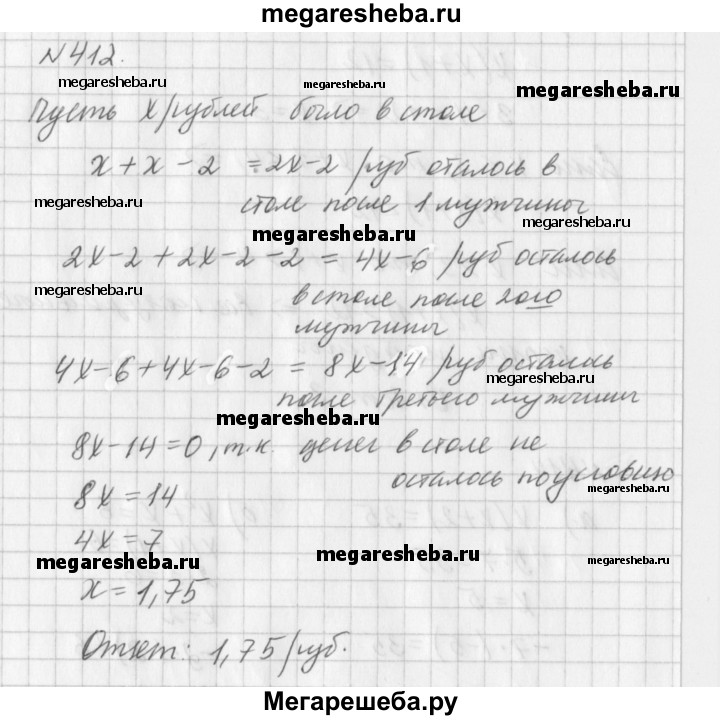 megaresheba.ru
N 412.
megaresheba.ru megaresheba.ru megaresheba.ru
Пусть x/рублей было в столе
x + x - 2 = 2x-2 /руб оталось в
megaresheba.ru
столе после 1 мужчины
megaresheba.ru
2x-2+2x-2-2 = 4x-6 /руб осталось
megaresheba.ru
в столе после 2ого
мужчины
4x-6+4x-6-2 = 8x-14 /руб осталось
megaresheba.ru
после третьего мужчины
megaresheba.ru
8x-14=0, т.к. денег в столе не
осталось по условию
megaresheba.ru
8x=14
4x=7
megaresheba.ru megaresheba.ru megaresheba.ru
x=1,75
Ответ: 1,75/руб.
Мегарешеба.ру